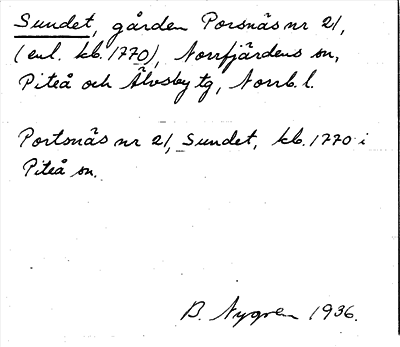 Sundet, gården Porsnäs nr 21,
(enl. kb. 1770), Norrfjärdens sn,
Piteå och Älvsby tg, Norrb. l.
Portsnäs nr 21, Sundet, kb. 1770 i
Piteå sn.
B. Nygren 1936.